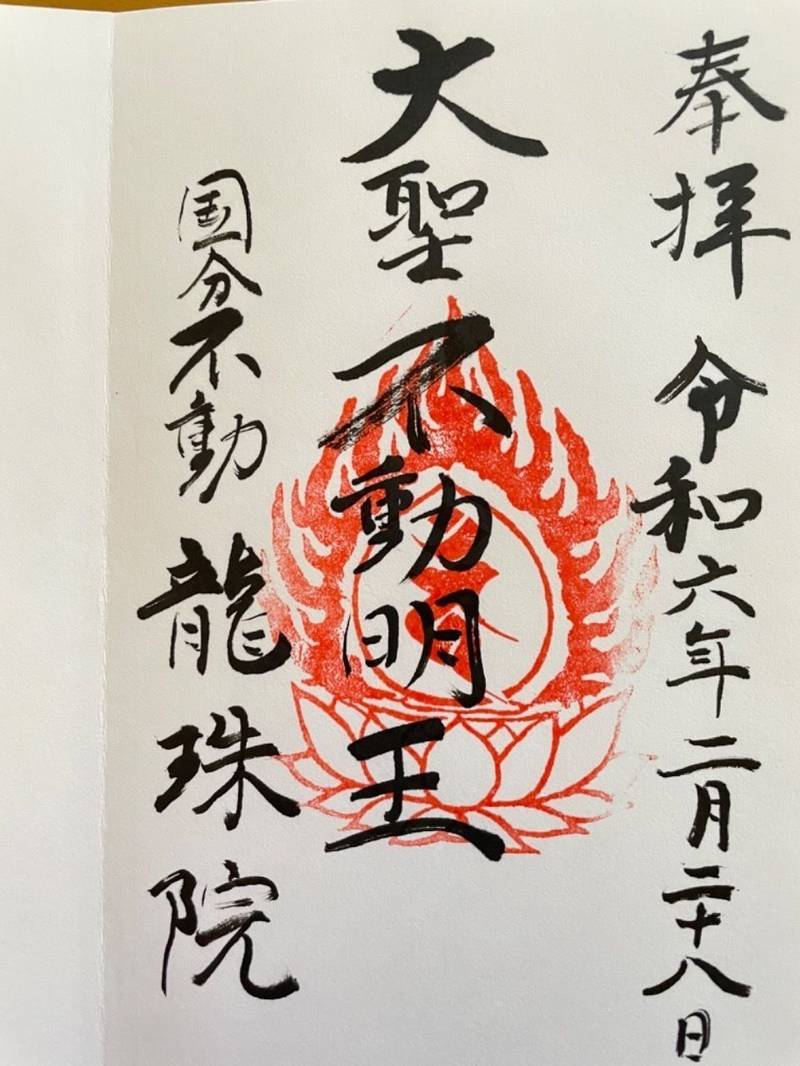 奉拝 令和六年二月二十八日
大聖不動明王
国分不動 龍珠院